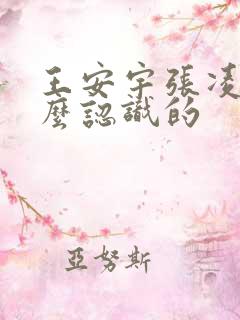 王安宇張凌
麼認識的
亞努斯